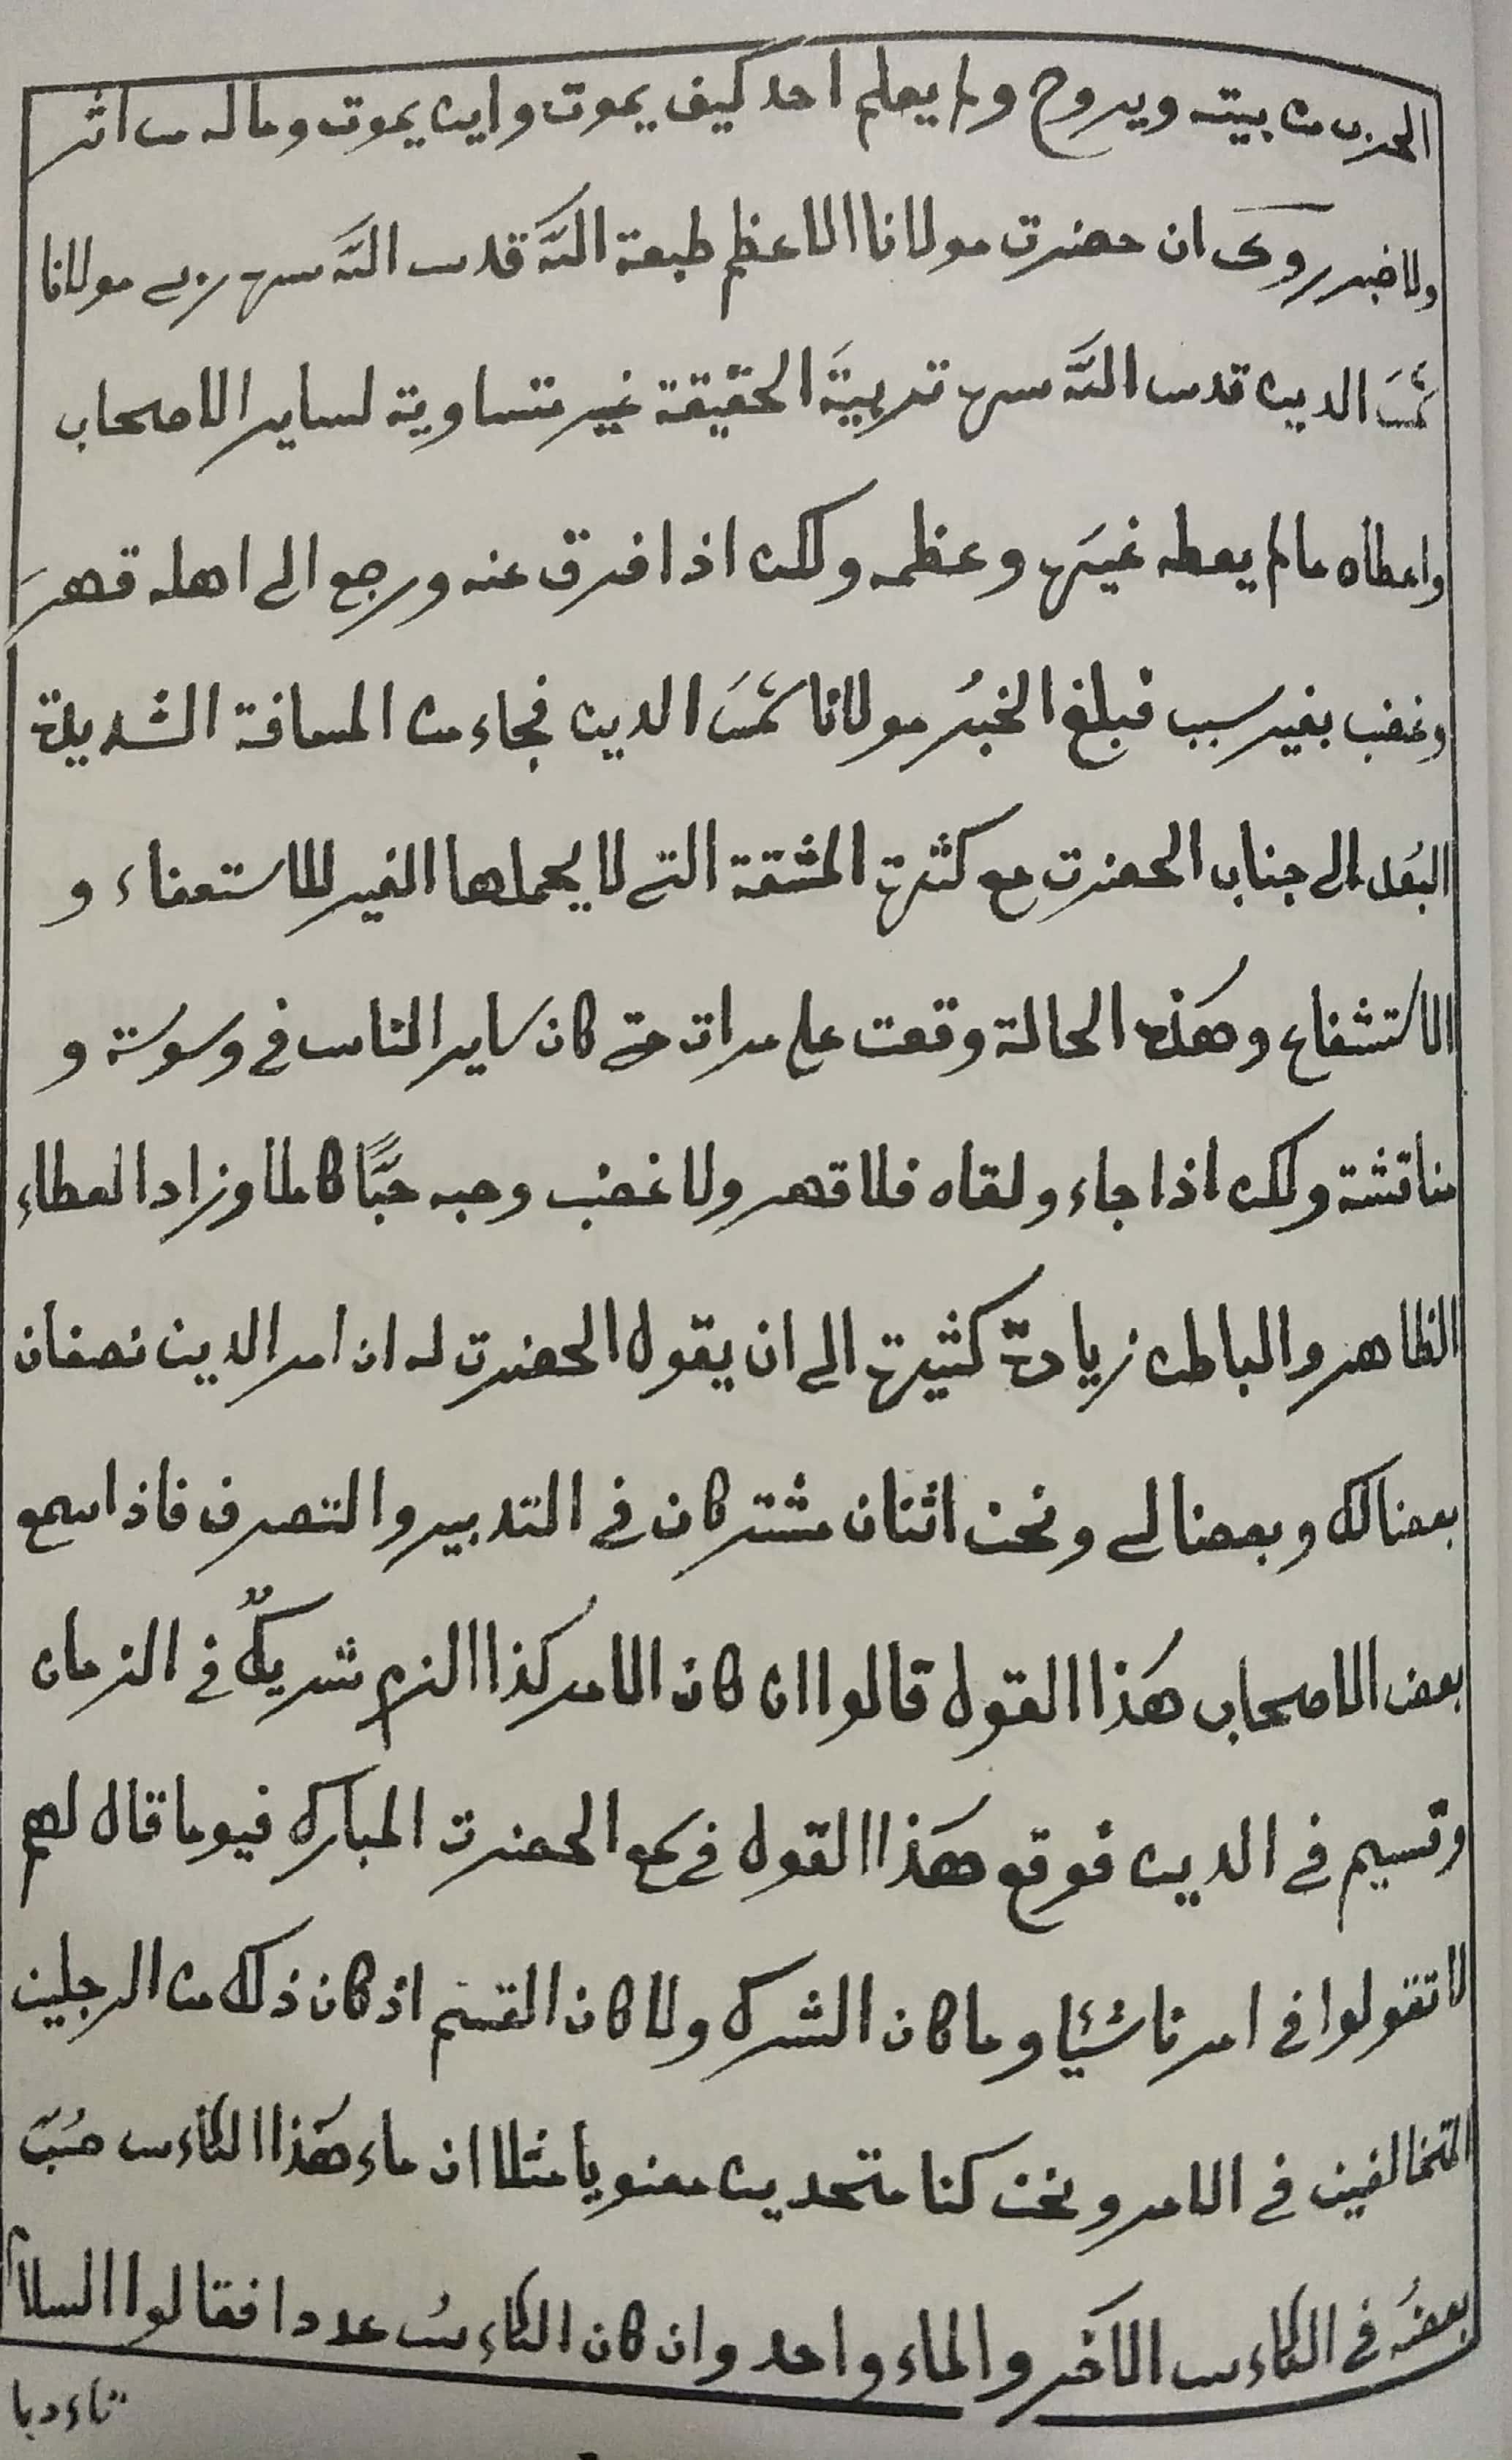 الحزن من بيته ويروح ولم يعلم احد كيف يموت واين يموت وماله من اثر
ولا خبر روى ان حضرت مولانا الاعظم طبعة الله قدس الله سره ربى مولانا
شمس الدين قدس الله سره تربية الحقيقة غير متساوية لساير الاصحاب
واعطاه مالم يعطه غيره وعظمه ولكن اذا افرق عنه ورجع الى اهله قهره
وغضب بغير سبب فبلغ الخبر مولانا شمس الدين فجاء من المسافة الشديدة
البُعد الى جناب الحضرت مع كثرة المشقة التي لا يحملها الغير للاستعفاء و
الاستشفاع وهذه الحالة وقعت على مرات حتى كان ساير الناس في وسوسة و
مناقشة ولكن اذا جاء ولقاه فلا قهر ولا غضب وحبه حبًّا كاملا وزاد العطاء
الظاهر والباطن زيادة كثيرة الى ان يقول الحضرت له ان امر الدين نصفان
بعضا لك وبعضا لي ونحن اثنان مشتركان في التدبير والتصرف فاذا سمع
بعض الاصحاب هذا القول قالوا ان كان الامر كذا الزم شريكٌ في الزمان
وقسيم في الدين فوقع هذا القول في سمع الحضرت المبارك فيوما قال لهم
لا تقولوا في امرنا شيئا وما كان الشرك ولا كان القسم اذ كان ذلك من الرجلين
المتخالفين في الامر ونحن كنا متحدين معنويا مثلا ان ماء هذا الكاءس صُبّ
بعضُه في الكاءس الآخر والماء واحد وان كان الكاءسُ عددا فقالوا السلام